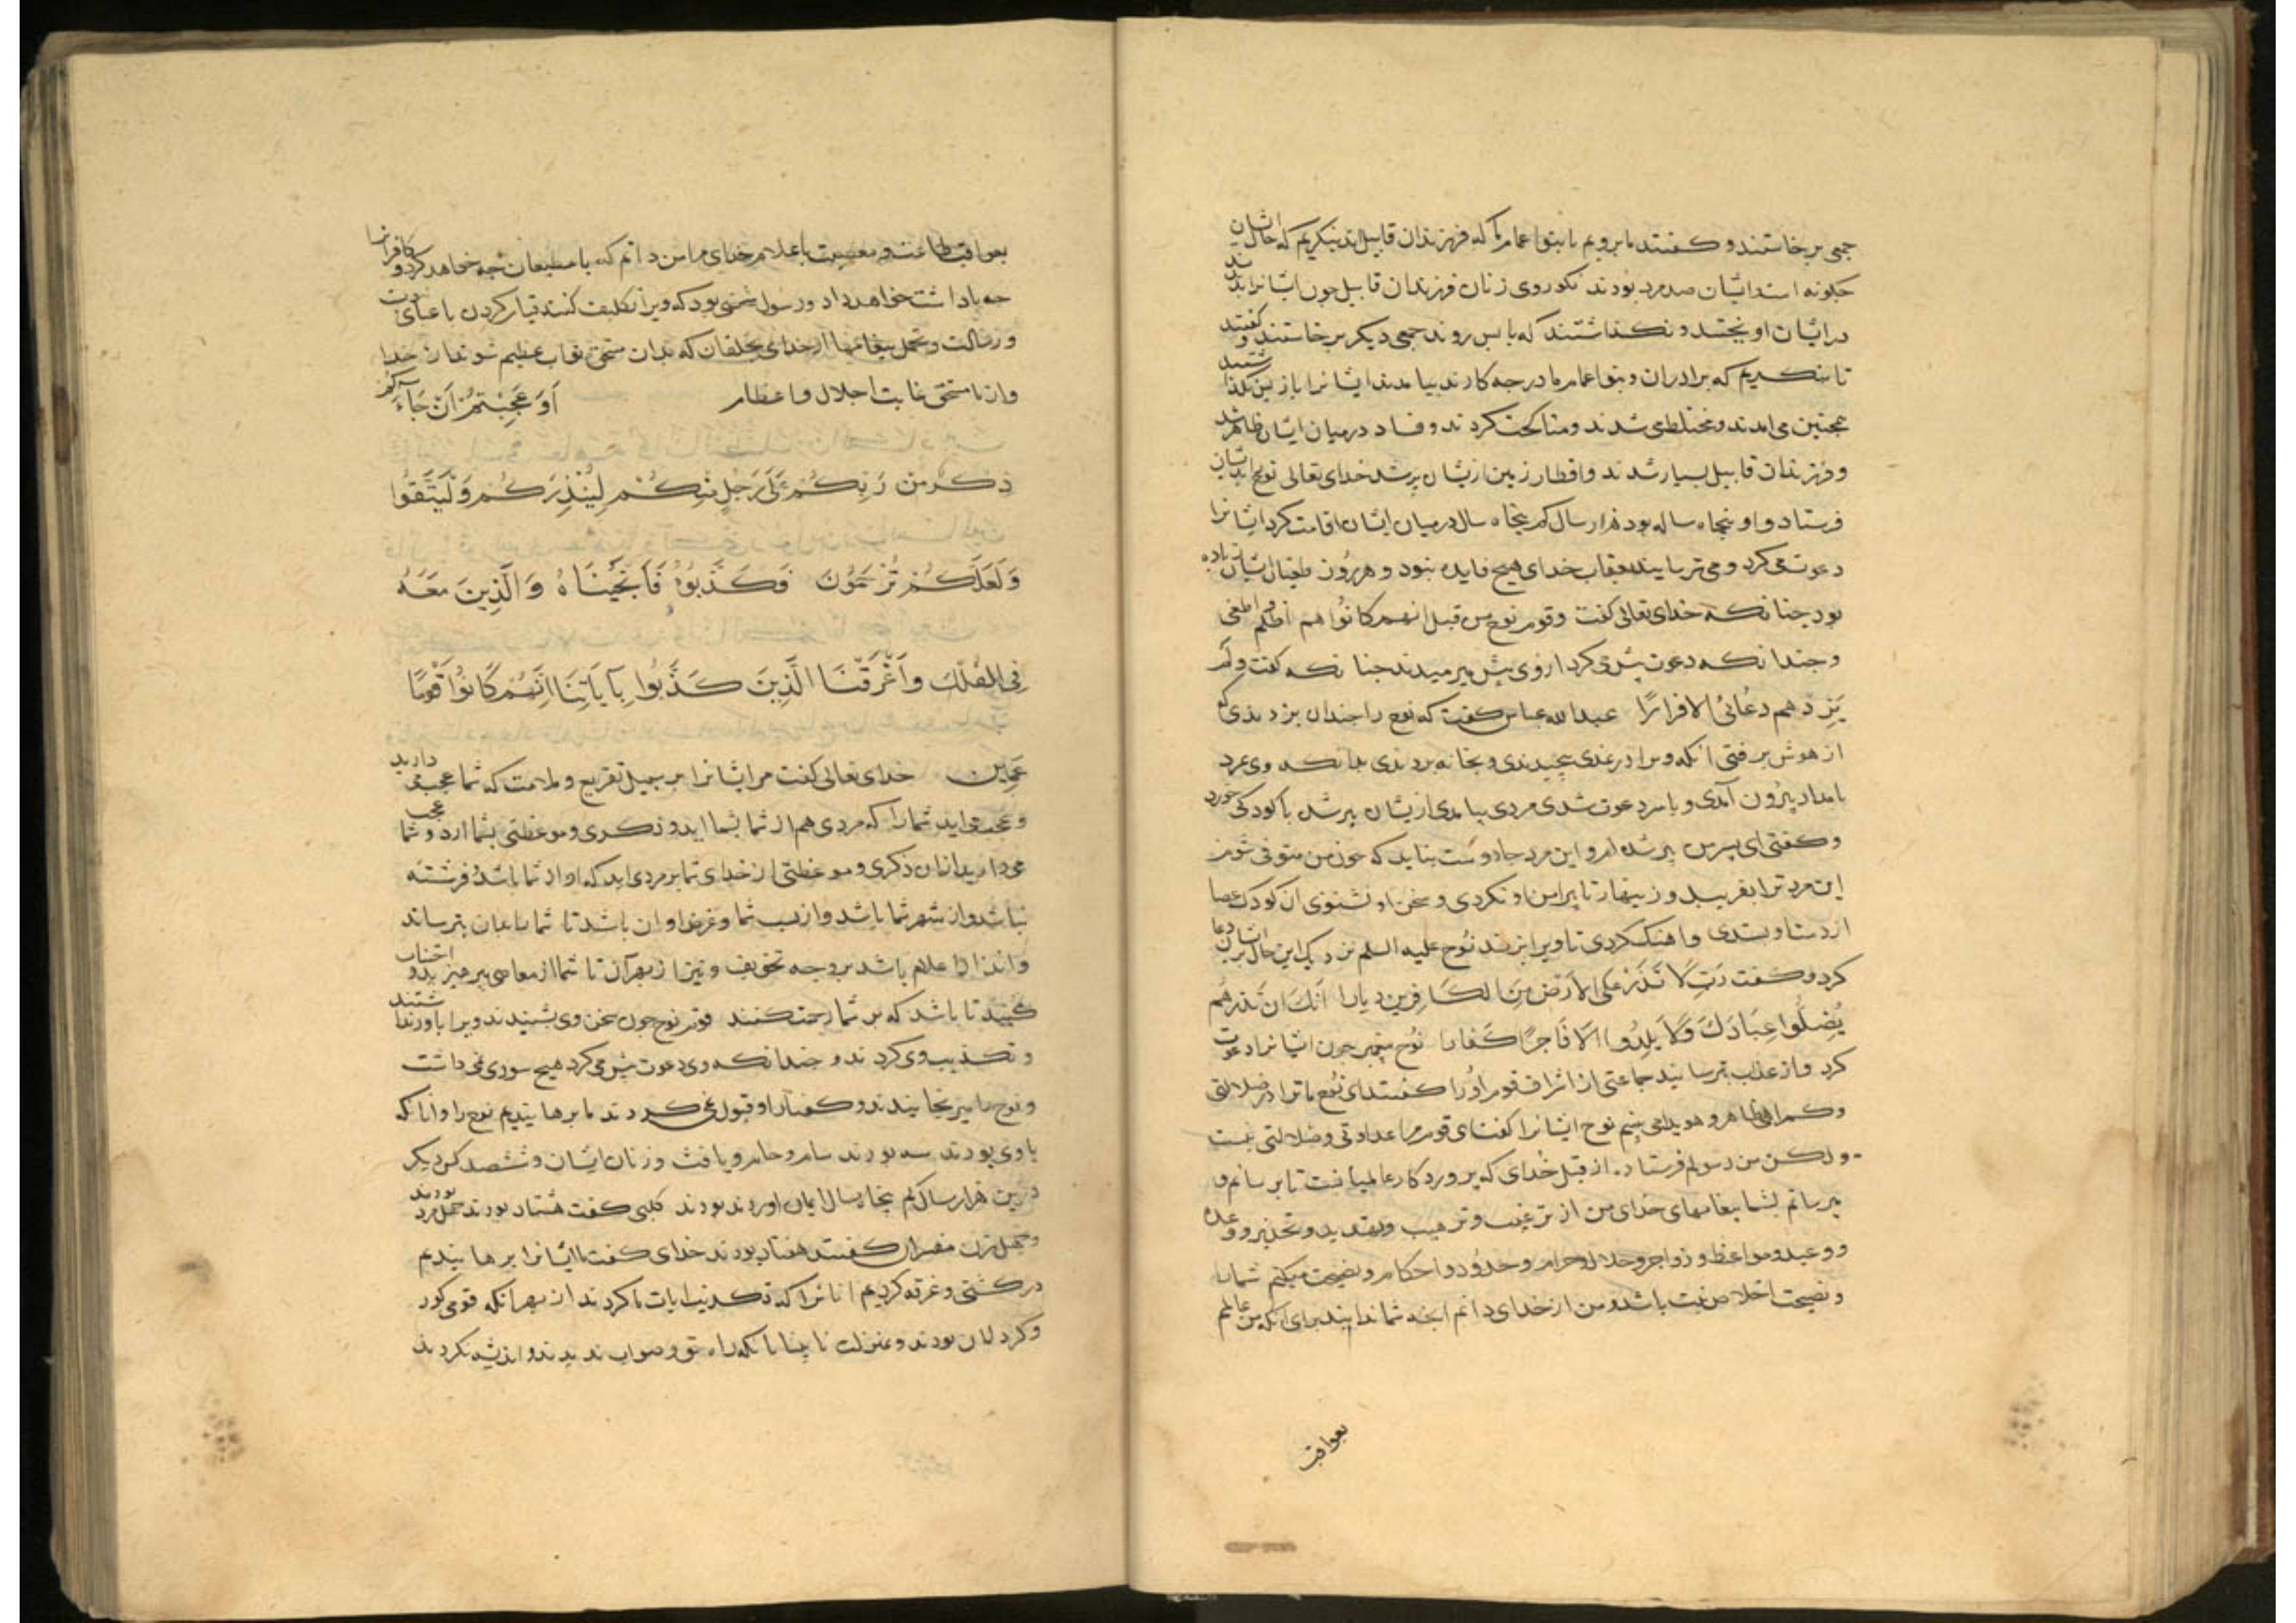 جمعی برخاستند و کفتند ما برویم با بنو اعمام ما که فرزندان قابیل اند بنکریم که حال ایشان
جکونه است ایشان صد مرد بودند نکو روی زنان فرزندان قابیل جون ایشانرا بدیدند
در ایشان اویختند و نکذاشتند که باپس روند جمعی دیکر برخاستند و کفتند
تا بنکریم که برادران و بنو اعمام ما درجه کارند بیامدند ایشانرا باز پس نکذاشتند
همجنین می امدند و مختلط می شدند و مناکحت کردند و فساد درمیان ایشان ظاهر شد
و فرزندان قابیل بسیار شدند و اقطار زمین ازیشان پر شد خدای تعالی نوح را بدیشان
فرستاد و او پنجاه ساله بود هزار سال کم پنجاه سال درمیان ایشان اقامت کرد ایشانرا
دعوت می کرد و می ترسانید بعقاب خدای هیج فایده نبود و هر روز طغیان ایشان زیاده
بود جنانکه خدای تعالی کفت و قوم نوح من قبل انهم کانوا هم اظلم و اطغی
و جندانکه دعوت بیش کرد از وی بیش می رمیدند جنانکه کفت و لم
یزدهم دعائی الا فرارًا عبدالله عباس کفت که نوح را جندان بزدندی که
از هوش برفتی انکه ویرا در نمدی پیجیدندی و بخانه بردندی بدانکه وی مرد
بامداد بیرون آمدی و باسر دعوت شدی مردی بیامدی ازیشان پیر شده با کودکی خورد
و کفتی ای پسر من پیر شده ام و این مرد جادوست نباید که جون من متوفی شوم
این مرد ترا بفریبد و زینهار تا پیرامن او نکردی و سخن او نشنوی ان کودک عصا
از دست او بستدی و اهنک کردی تا ویرا بزند نوح علیه السلم نزدیک این حال بر ایشان دعا
کرد و کفت رب لا تذر علی الارض من الکافرین دیارا انک ان تذرهم
یضلوا عبادک ولا یلدوا الا فاجرًا کفارا نوح پیغمبر جون ایشانرا دعوت
کرد و از عذاب بترسانید جماعتی از اشراف قوم او را کفتند ای نوح ما ترا در ضلالتی
و کمراهی ظاهر و هویدا می بینیم نوح ایشانرا کفت ای قوم مرا عداوتی و ضلالتی نیست
و لکن من رسولم فرستاده از قبل خدای که پروردکار عالمیانست تا برسانم و
می رسانم بشما پیغامهای خدای من از ترغیب و ترهیب و تهدید و تحذیر و وعده
و وعید و مواعظ و زواجر و حلال و حرام و حدود و احکام و نصیحت میکنم شمارا
و نصیحت اخلاص نیت باشد و من از خدای دانم انجه شما ندانید برای انکه من عالمم
بعواقب
بعواقب طاعت و معصیت باعلام خدای مرا من دانم که با مطیعان جه خواهد کرد و کافرانرا
جه باداشت خواهد داد و رسول شخصی بود که ویرا تکلیف کنند قیام کردن باعباء
و رسالت و تحمل پیغامها از خدای بخلقان که بدان مستحق ثواب عظیم شوند از خدا
و ازنا مستحق غایت اجلال و اعظام اَوَ عَجِبْتُمْ اَنْ جَاءَکُمْ
ذِکْرٌ مِنْ رَبِّکُمْ عَلَی رَجُلٍ مِنْکُمْ لِیُنْذِرَکُمْ وَلِتَتَّقُوا
وَلَعَلَّکُمْ تُرْحَمُونَ فَکَذَّبُوهُ فَاَنْجَیْنَاهُ وَالَّذِینَ مَعَهُ
فِی الْفُلْکِ وَاَغْرَقْنَا الَّذِینَ کَذَّبُوا بِآیَاتِنَا اِنَّهُمْ کَانُوا قَوْمًا
عَمِینَ خدای تعالی کفت مر ایشانرا بر سبیل تقریع و ملامت که شما عجب می دارید
و عجب می اید شمارا که مردی هم از شما بشما اید و ذکری و موعظتی بشما ارد و شما عجب
می دارید ازان ذکری و موعظتی از خدای شما بر مردی اید که او از شما باشد فرشته
نباشد و از شهر شما باشد و از نسب شما و غرض او ان باشد تا شمارا بدان بترساند
و انذار اعلام باشد بر وجه تخویف و نیز از بهر آن تا شما از معاصی بپرهیزید و اجتناب
کنید تا باشد که بر شما رحمت کنند قوم نوح جون سخن وی بشنیدند ویرا باور نداشتند
و تکذیب وی کردند و جندانکه وی دعوت بیش می کرد هیج سودی نمی داشت
و نوح را میرنجانیدند و کفتار او قبول نمی کردند ما برهانیدیم نوح را و انانکه
با وی بودند سه بودند سام و حام و یافث و زنان ایشان و ششصد کس دیکر
درین هزار سال کم پنجاه سال ایمان اورده بودند کلبی کفت هشتاد بودند جهل مرد بودند
و جهل زن مفسران کفتند هفتاد بودند خدای کفت ما ایشانرا برهانیدیم
در کشتی و غرقه کردیم انانرا که تکذیب ایات ما کردند از بهر انکه قومی کور
و کر دلان بودند و بمنزلت نابینا یا انکه راه حق و صواب ندیدند و اندیشه نکردند